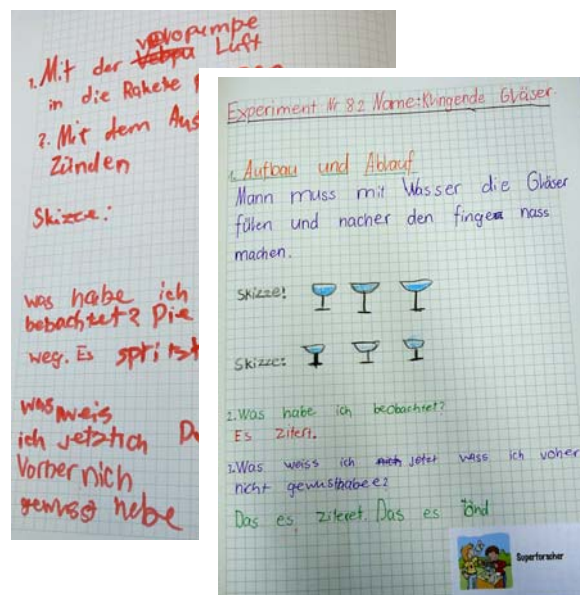 velopumpe
1. Mit der Luft
in die Rakete
2. Mit dem Aus
Zünden
Skizze:
was habe ich
bebachtet? Die
weg. Es spritst
was weis
ich jetzt ich
Vorher nich
gewusst hebe
Experiment Nr 8.2 Name: Klingende Gläser.
1. Aufbau und Ablauf
Mann muss mit Wasser die Gläser
fülen und nacher den finger nass
machen.
Skizze:
Skizze:
2. Was habe ich beobachtet?
Es zitert.
3. Was weiss ich jetzt wass ich voher
nicht gewusthabee?
Das es ziteret. Das es tönd
Superforscher